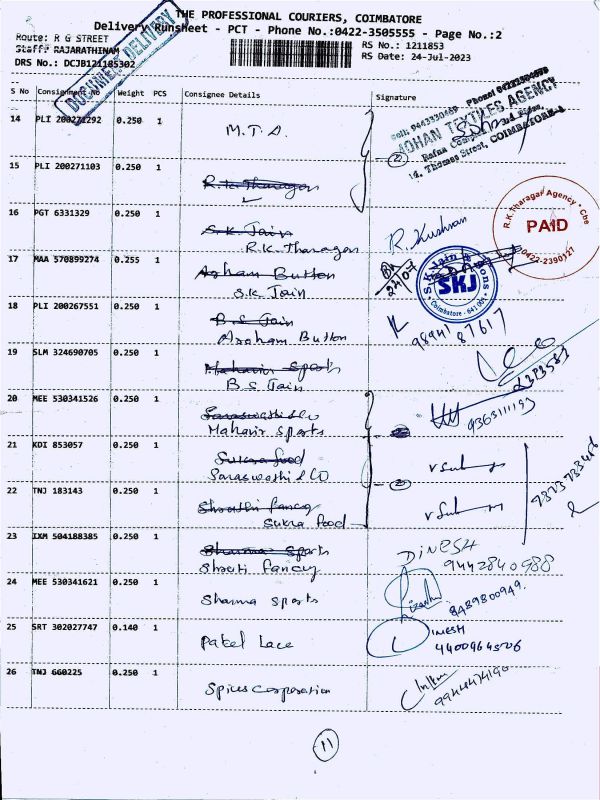 THE PROFESSIONAL COURIERS, COIMBATORE
Delivery Runsheet - PCT - Phone No.:0422-3505555 - Page No.:2
Route: R G STREET
RS No.: 1211853
Staff: RAJARATHINAM
RS Date: 24-Jul-2023
DRS No.: DCJB121185302
DOCUMENT DELIVERY
S No Consignment No Weight PCS Consignee Details Signature
14 PLI 200271292 0.250 1 M.T.A.
Cell: Phone: 04222304698
ROHAN TEXTILES AGENCY
14, Thomas Street, COIMBATORE-1
15 PLI 200271103 0.250 1 R.K. Tharagar
16 PGT 6331329 0.250 1 S.K. Jain
R.K. Tharagar R. Kushran
R.K.Tharagar Agency - Cbe
PAID
0422-2390127
17 MAA 570899274 0.255 1 Arham Button
S.K. Jain
S.K. Jain & Sons
SKJ
Coimbatore - 641 001
18 PLI 200267551 0.250 1 B S Jain
Arham Button 9894187617
19 SLM 324690705 0.250 1 Mahavir Sports
B.S Jain
20 MEE 530341526 0.250 1 Saraswathi & Co
Mahavir Sports
21 KDI 853057 0.250 1 Sukra food
Saraswathi & CO
22 TNJ 183143 0.250 1 Shruthi fancy
Sukra food
23 IXM 504188385 0.250 1 Sharma Sports
Shruti fancy DINESH
9442840988
24 MEE 530341621 0.250 1 Sharma Sports 8489800949.
25 SRT 302027747 0.140 1 Patel Lace DINESH
26 TNJ 660225 0.250 1 Spices Corporation
11